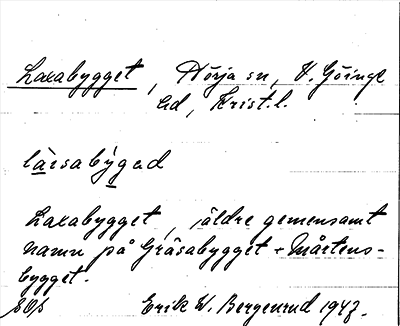 Laxabygget, Nörja sn, V. Göinge
hd, Krist. l.
làcsabýgad
Laxabygget, äldre gemensamt
namn på Gräsabygget + Mårtens-
bygget.
Erik W. Bergenrud 1947.